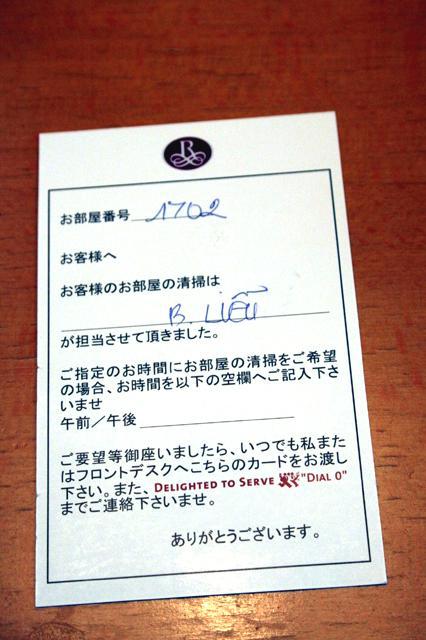 R
お部屋番号 1702
お客様へ
お客様のお部屋の清掃は
B. LIỄU
が担当させて頂きました。
ご指定のお時間にお部屋の清掃をご希望
の場合、お時間を以下の空欄へご記入下さ
いませ
午前／午後
ご要望等御座いましたら、いつでも私また
はフロントデスクへこちらのカードをお渡し
下さい。また、DELIGHTED TO SERVE "DIAL 0"
までご連絡下さいませ。
ありがとうございます。